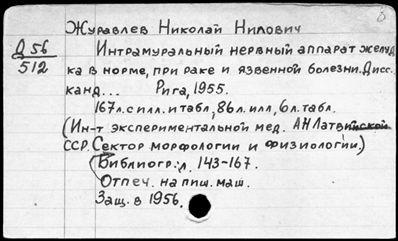 Журавлев Николай Нилович
Д 56
512
Интрамуральный нервный аппарат желуд
ка в норме, при раке и язвенной болезни. Дисс.
канд... Рига, 1955.
167л. с илл. и табл., 86л. илл., 6л. табл.
(Ин-т экспериментальной мед. АН Латвийской
ССР. Сектор морфологии и физиологии.)
Библиогр: л. 143-167.
Отпеч. на пиш. маш.
Защ. в 1956.